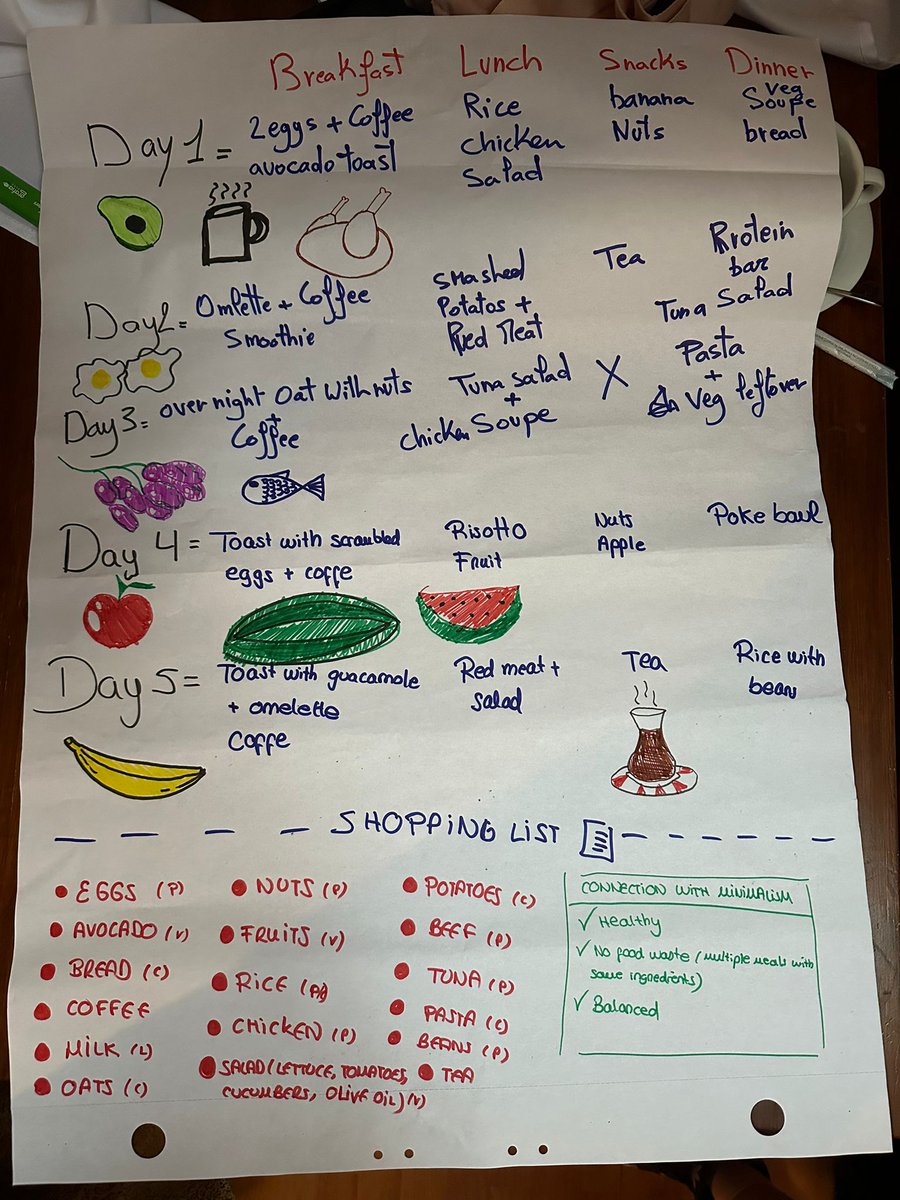 Breakfast Lunch Snacks Dinner
Day 1 = 2eggs + Coffee
avocado toast
Rice
chicken
Salad
banana
Nuts
veg
Soupe
bread
Day 2 = Omlette + Coffee
Smoothie
smashed
Potatos +
Red Meat
Tea
Protein
bar
Tuna Salad
Day 3 = over night Oat with nuts
+
Coffee
Tuna salad
+
chicken Soupe
X
Pasta
+
Veg leftover
Day 4 = Toast with scrambled
eggs + coffe
Risotto
Fruit
Nuts
Apple
Poke bowl
Day 5 = Toast with guacamole
+ omelette
Coffe
Red meat +
salad
Tea
Rice with
bean
SHOPPING LIST
EGGS (P)
AVOCADO (V)
BREAD (C)
COFFEE
MILK (L)
OATS (C)
NUTS (P)
FRUITS (V)
RICE
CHICKEN (P)
SALAD (LETTUCE, TOMATOES,
CUCUMBERS, OLIVE OIL) (V)
POTATOES (C)
BEEF (P)
TUNA (P)
PASTA (C)
BEANS (P)
TEA
CONNECTION WITH MINIMALISM
✓ Healthy
✓ No food waste (multiple meals with
same ingredients)
✓ Balanced